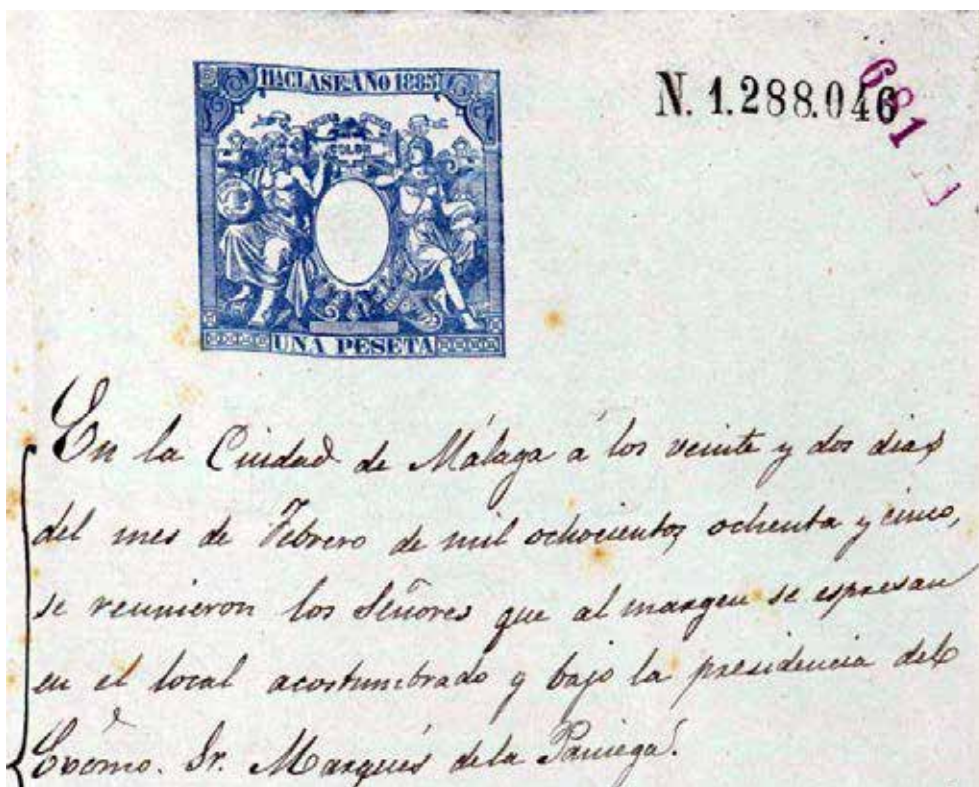 11ª CLASE AÑO 1885
N. 1.288.046
681
COLON
UNA PESETA
En la Ciudad de Málaga á los veinte y dos dias
del mes de Febrero de mil ochocientos ochenta y cinco,
se reunieron los Señores que al margen se espresan
en el local acostumbrado y bajo la presidencia del
Excmo. Sr. Marqués de la Paniega.